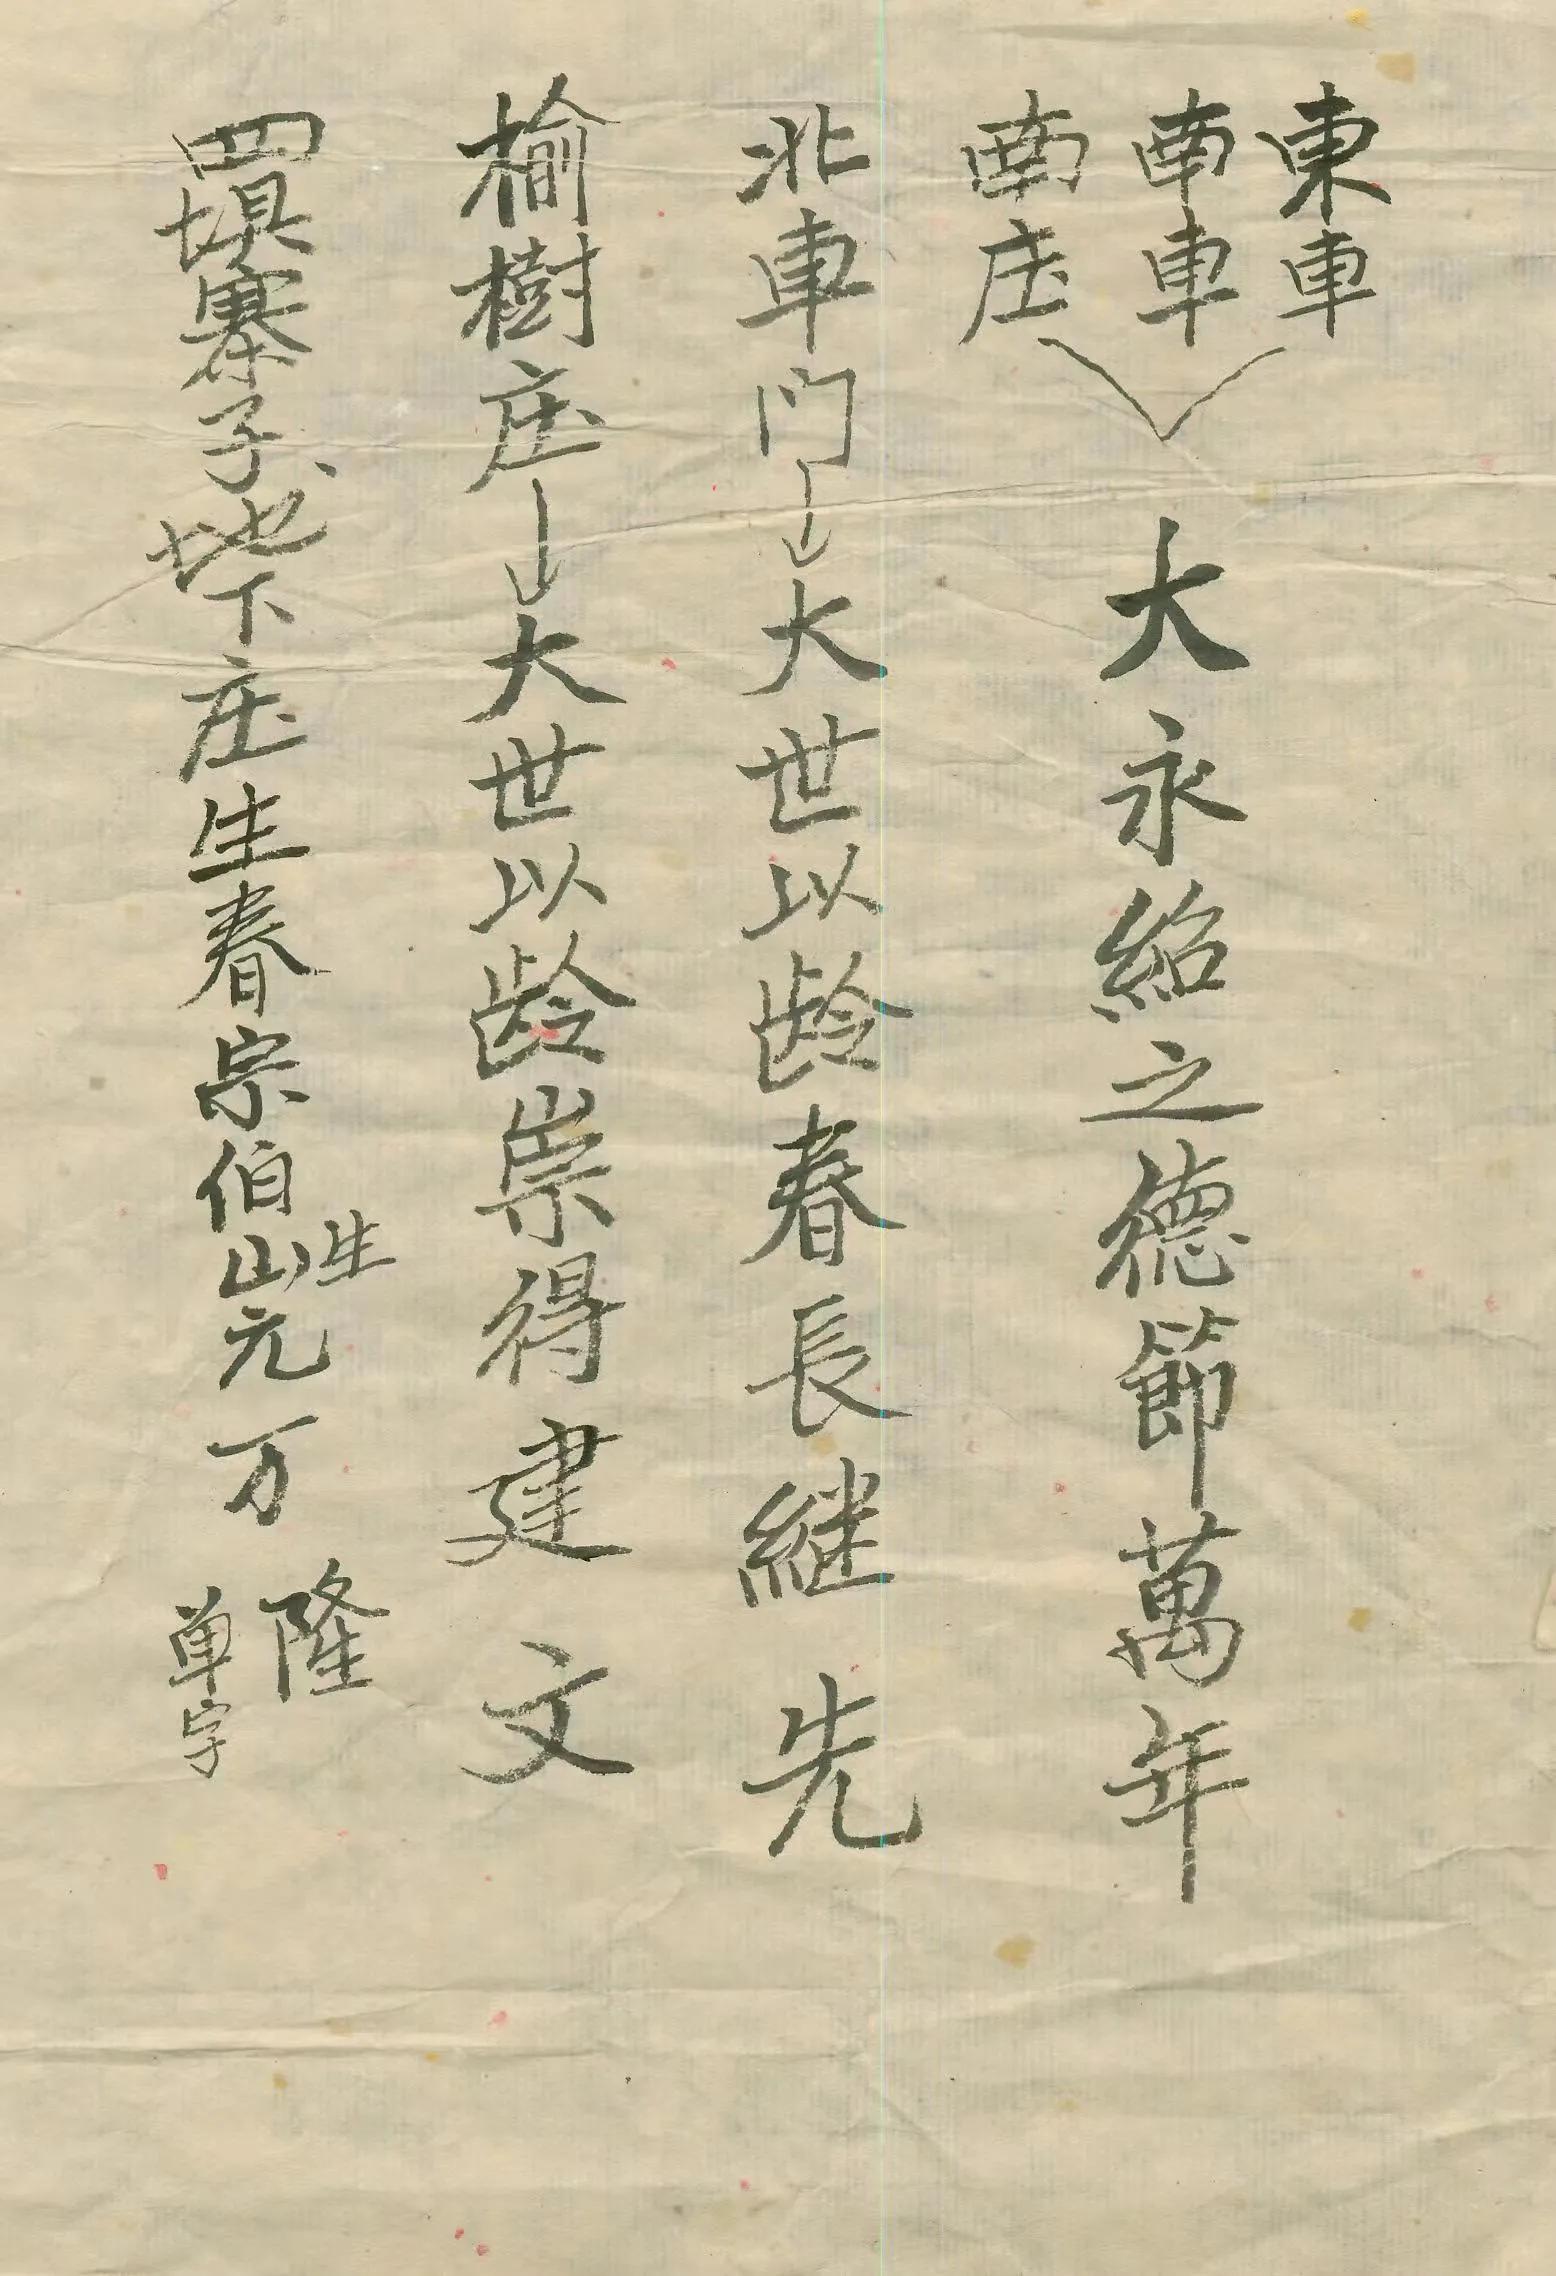 東車
南車
南庄
大永紹之德節萬年
北車门大世以龄春長継先
榆樹庄大世以龄崇得建文
四埧寨子地下庄生春宗伯山元万
生
隆
单字